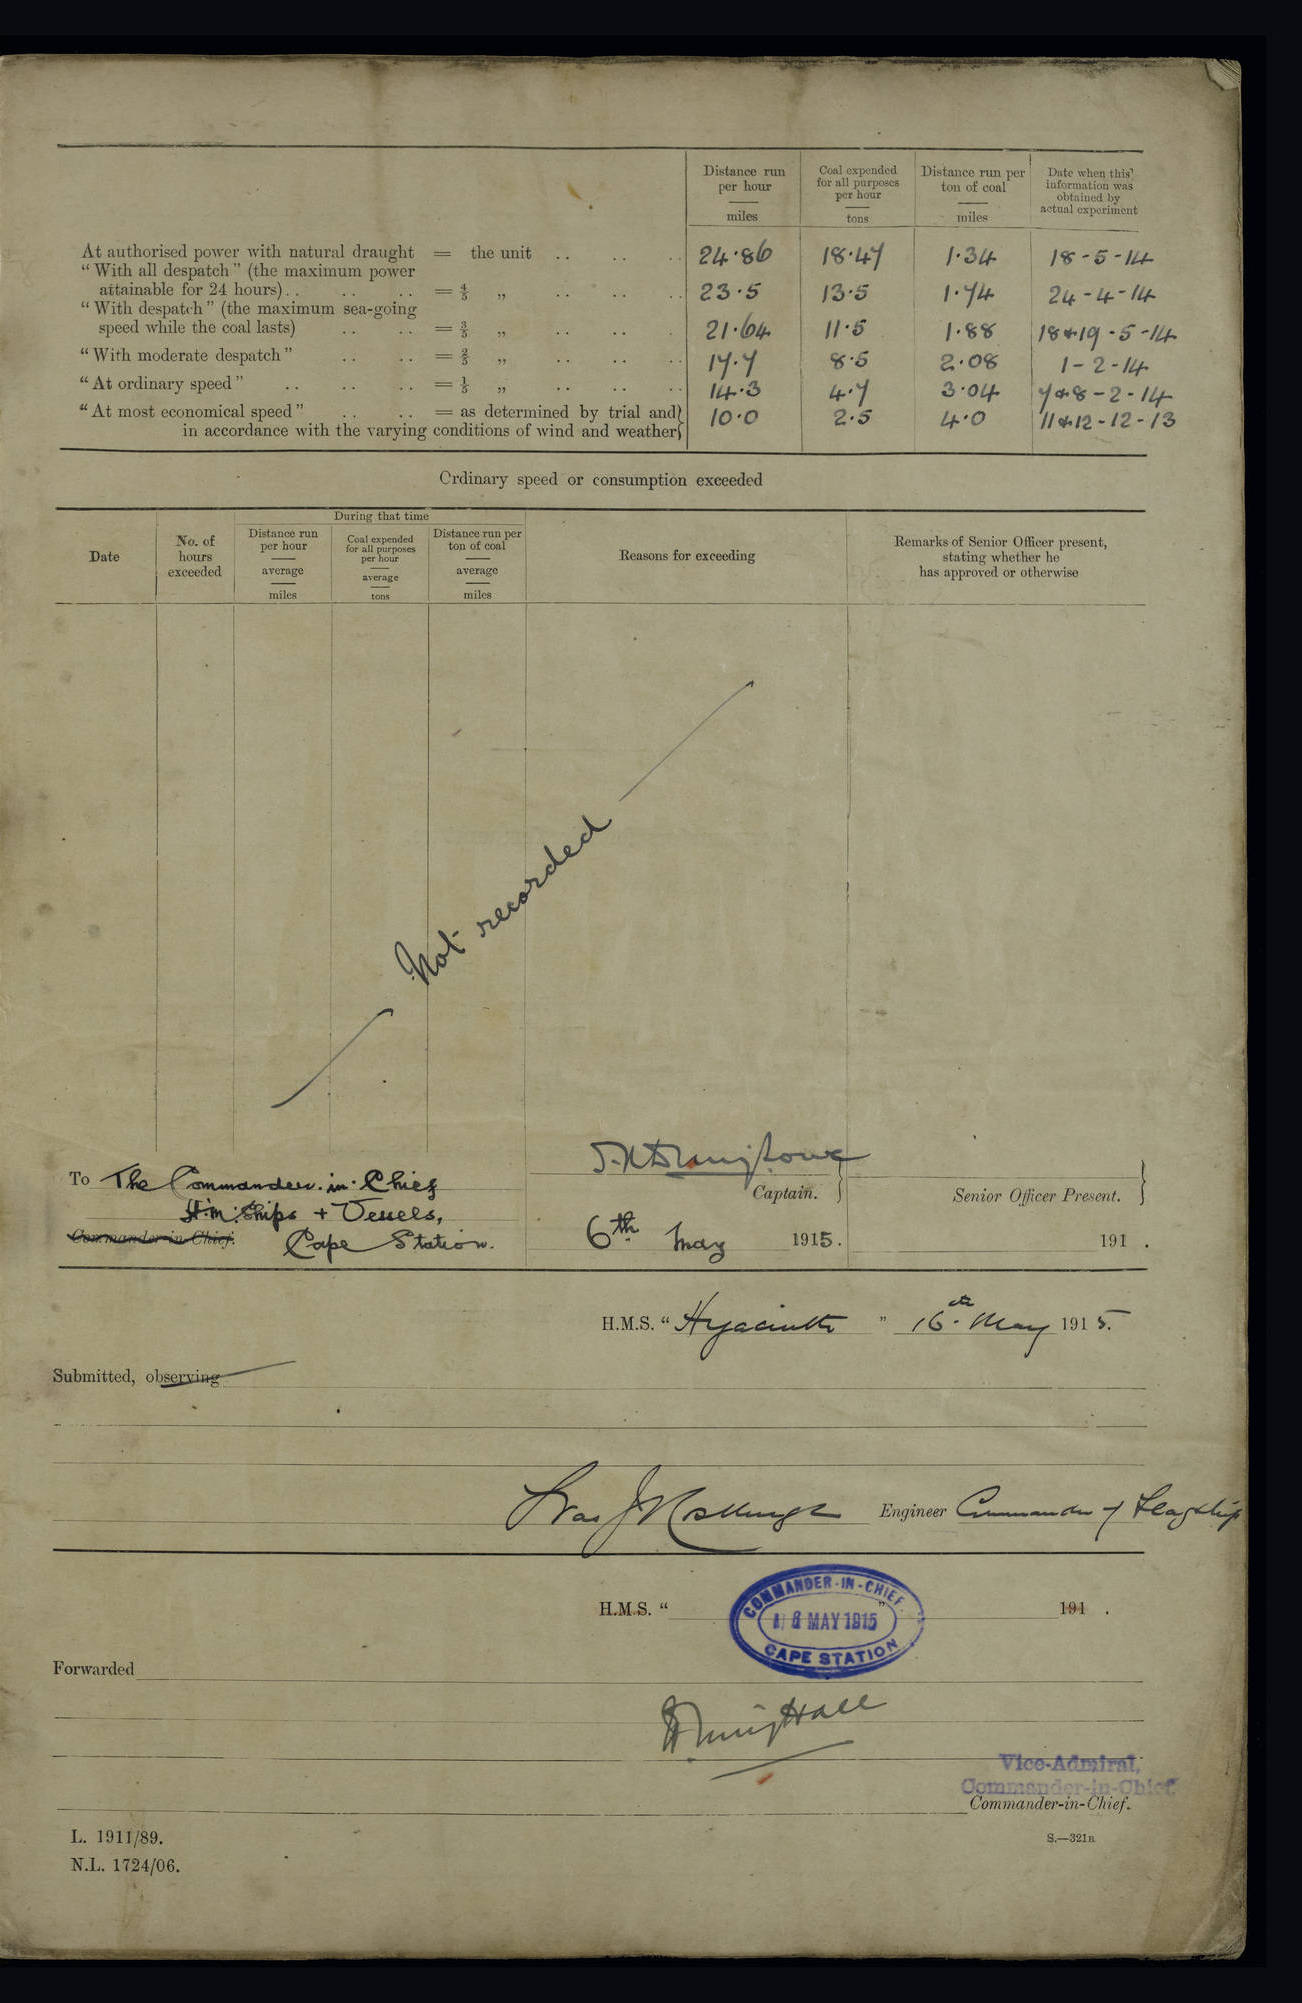 Distance run per hour miles
Coal expended for all purposes per hour tons
Distance run per ton of coal miles
Date when this information was obtained by actual experiment
At authorised power with natural draught = the unit .. .. .. 24·86 18·47 1·34 18-5-14
“With all despatch” (the maximum power
attainable for 24 hours).. .. .. = 4/5 „ .. .. .. 23·5 13·5 1·74 24-4-14
“With despatch” (the maximum sea-going
speed while the coal lasts) .. .. = 3/5 „ .. .. .. 21·64 11·5 1·88 18&19-5-14
“With moderate despatch” .. .. = 2/5 „ .. .. .. 17·7 8·5 2·08 1-2-14
“At ordinary speed” .. .. .. = 1/5 „ .. .. .. 14·3 4·7 3·04 7&8-2-14
“At most economical speed” .. .. = as determined by trial and} 10·0 2·5 4·0 11&12-12-13
in accordance with the varying conditions of wind and weather}
Ordinary speed or consumption exceeded
Date
No. of hours exceeded
During that time
Distance run per hour average miles
Coal expended for all purposes per hour average tons
Distance run per ton of coal average miles
Reasons for exceeding
Remarks of Senior Officer present, stating whether he has approved or otherwise
Not recorded
To The Commander-in-Chief
H.M. Ships + Vessels,
Commander-in-Chief. Cape Station.
Captain. }
Senior Officer Present. }
6th May 1915.
191 .
H.M.S. “Hyacinth” 16th May 1915.
Submitted, observing
Engineer Commander of Flagship
H.M.S. “ ” 191 .
COMMANDER-IN-CHIEF.
MAY 1915
CAPE STATION
Forwarded
Vice-Admiral,
Commander-in-Chief.
Commander-in-Chief.
L. 1911/89.
N.L. 1724/06.
S.—321B